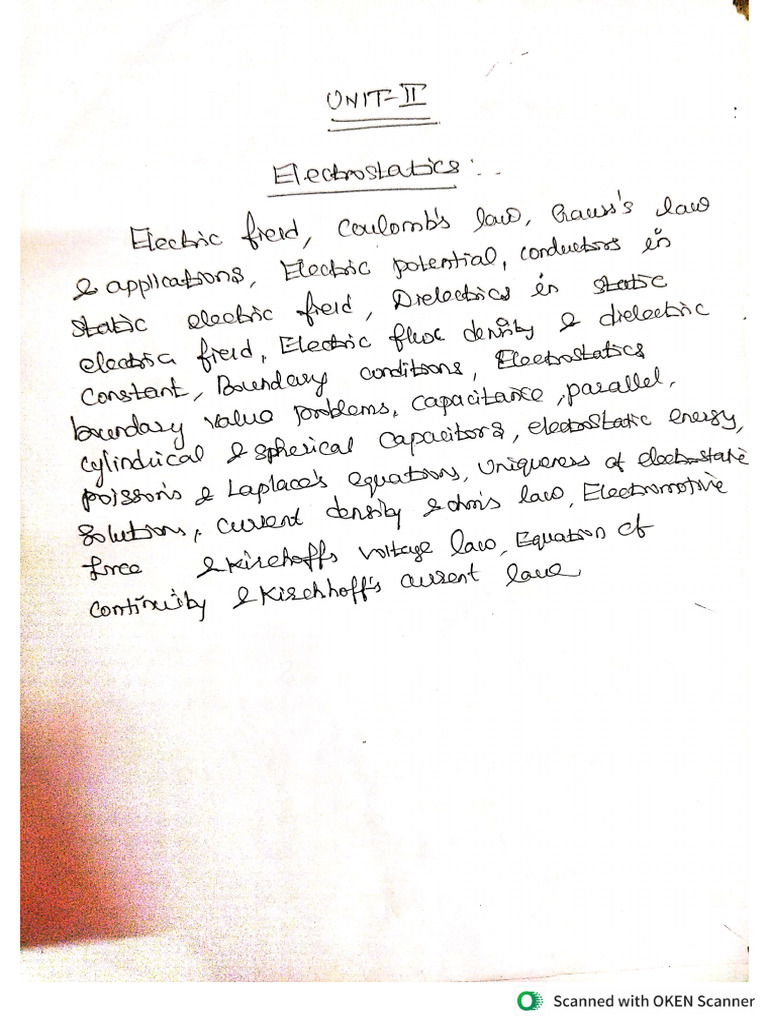 UNIT-II
Electrostatics:
Electric field, Coulomb's law, Gauss's law
& applications, Electric potential, conductors in
static electric field, Dielectrics in static
electric field, Electric flux density & dielectric
constant, Boundary conditions, Electrostatics
boundary value problems, capacitance, parallel,
cylindrical & spherical capacitors, electrostatic energy,
poisson's & Laplace's equations, Uniqueness of electrostatic
solutions, current density & ohm's law, Electromotive
force & Kirchoff's voltage law, Equation of
continuity & Kirchhoff's current law
Scanned with OKEN Scanner